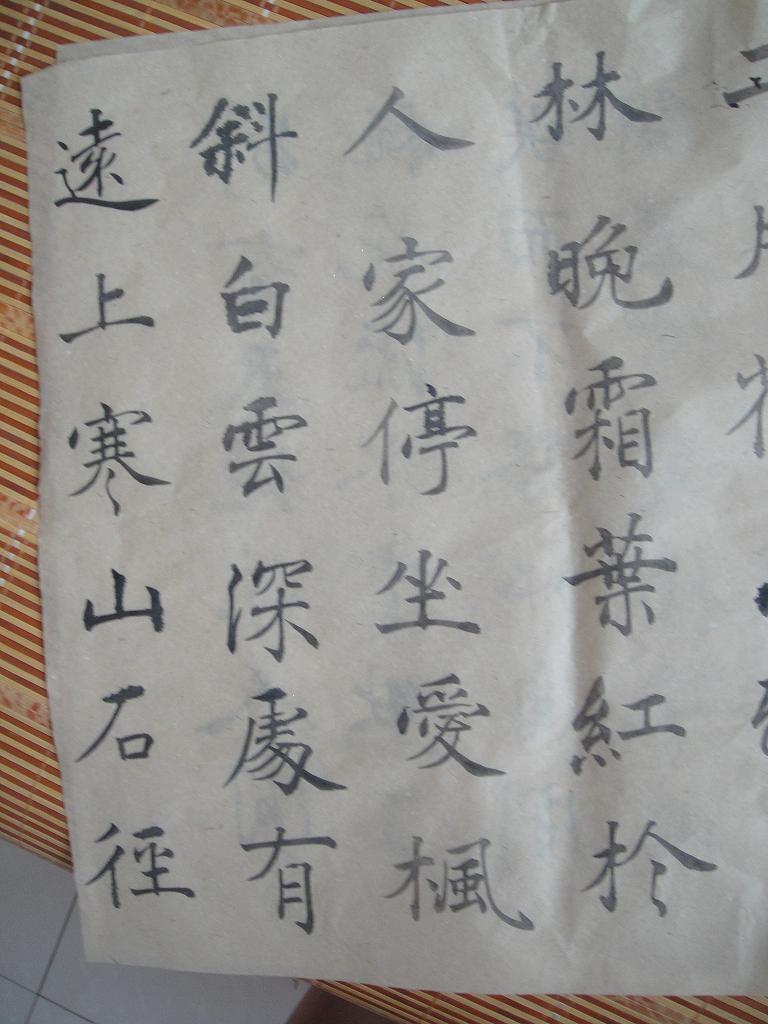 遠上寒山石徑
斜白雲深處有
人家停坐愛楓
林晚霜葉紅於